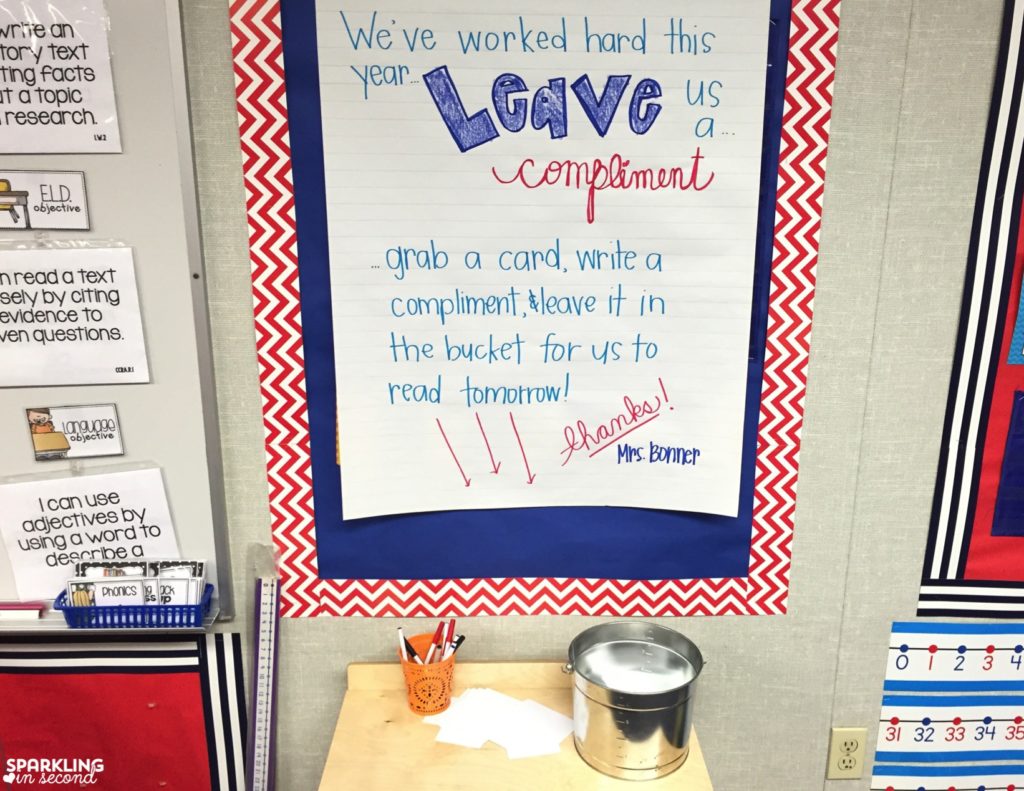 We've worked hard this
year... Leave us
a...
compliment
...grab a card, write a
compliment, & leave it in
the bucket for us to
read tomorrow!
thanks!
Mrs. Bonner
write an
text
facts
a topic
research.
1.W.2
E.L.D.
objective
read a text
by citing
evidence to
questions.
CCRA.R.1
Language
objective
I can use
adjectives by
using a word to
describe a
Phonics
0 1 2 3 4
31 32 33 34 35
SPARKLING
in second